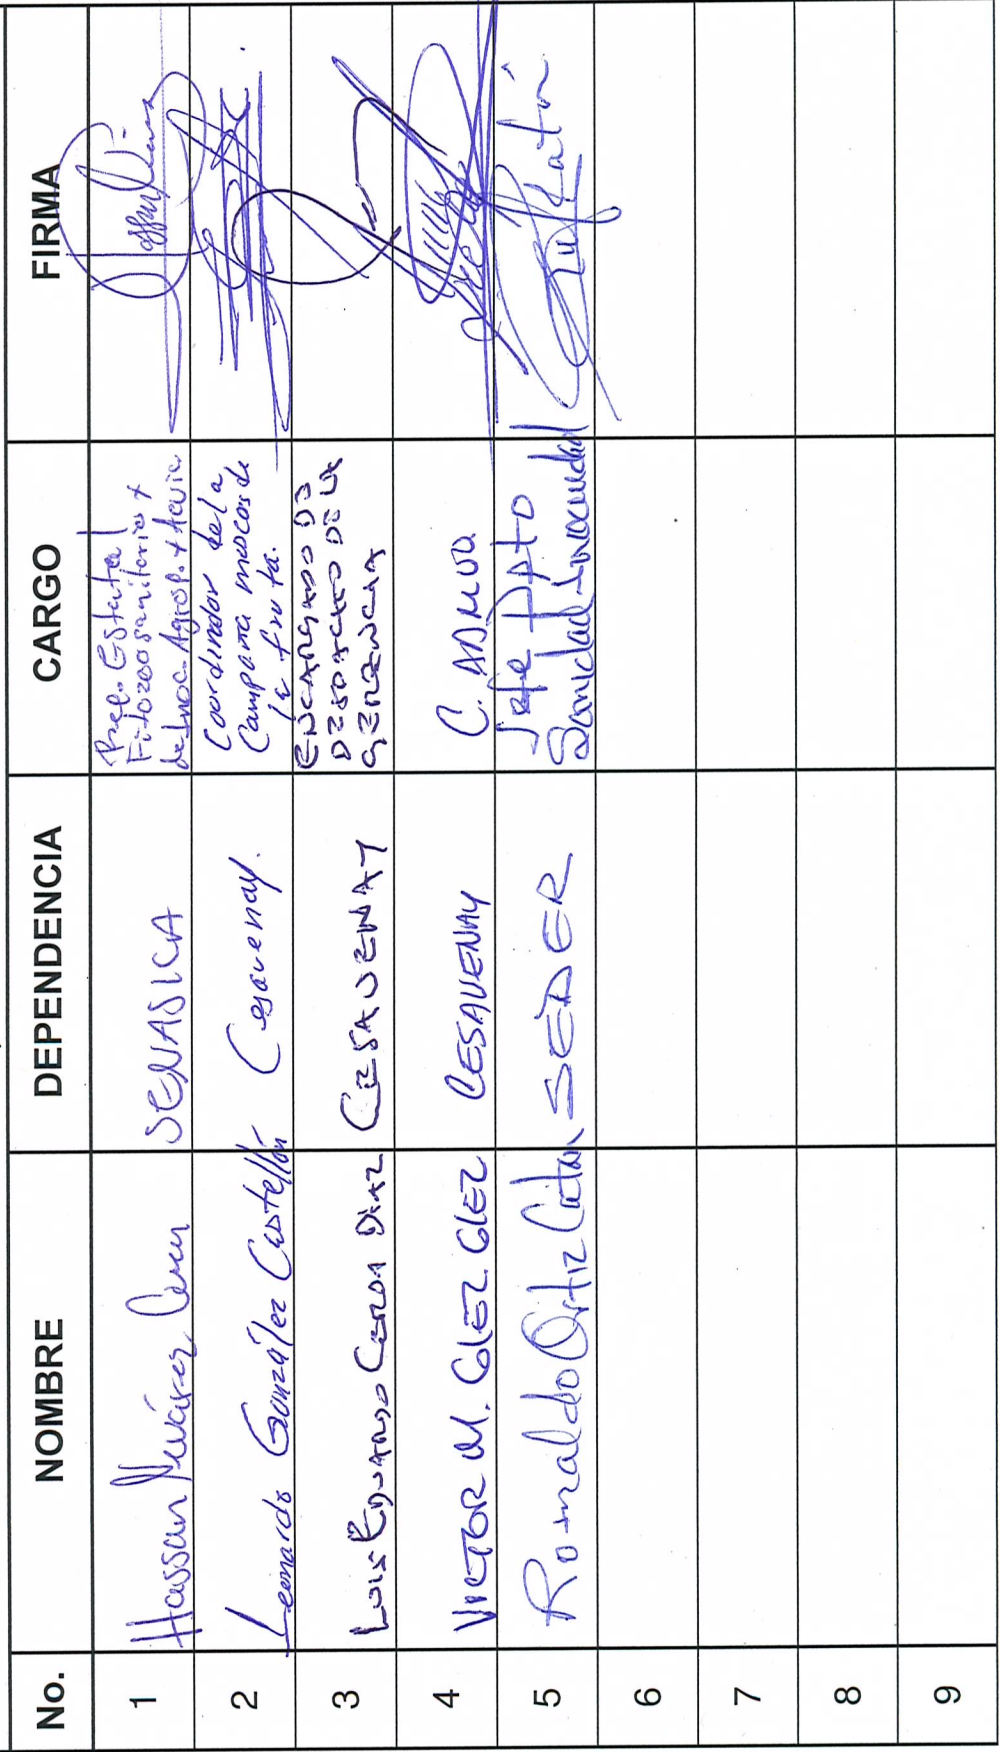 No. NOMBRE DEPENDENCIA CARGO FIRMA
1 Hassan Nevárez SENASICA Rep. Estatal
Fitozoosanitario y
de Inoc. Agrop. y Acuic
2 Leonardo González Castellón Cesavenay. Coordinador de la
Campaña moscas de
la fruta.
3 LUIS EDUARDO CERDA DIAZ CESAVENAY ENCARGADO DE
DESPACHO DE LA
GERENCIA
4 VICTOR M. GLEZ. GLEZ CESAVENAY C. ADMVO.
5 Romaldo Ortiz Catón SEDER Jefe Dpto
Sanidad Inocuidad
6
7
8
9